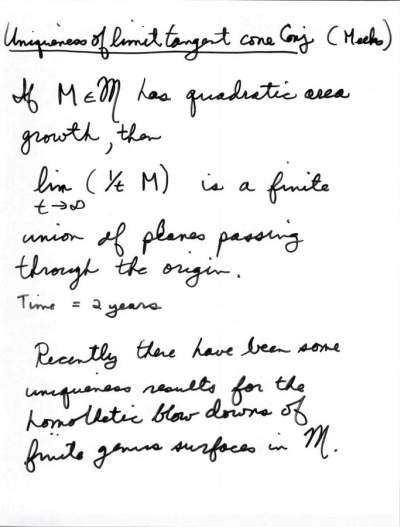 Uniqueness of limit tangent cone Conj (Meeks)
If M ∈ M has quadratic area
growth, then
lim (1/t M) is a finite
t→∞
union of planes passing
through the origin.
Time = 2 years
Recently there have been some
uniqueness results for the
homothetic blow downs of
finite genus surfaces in M.